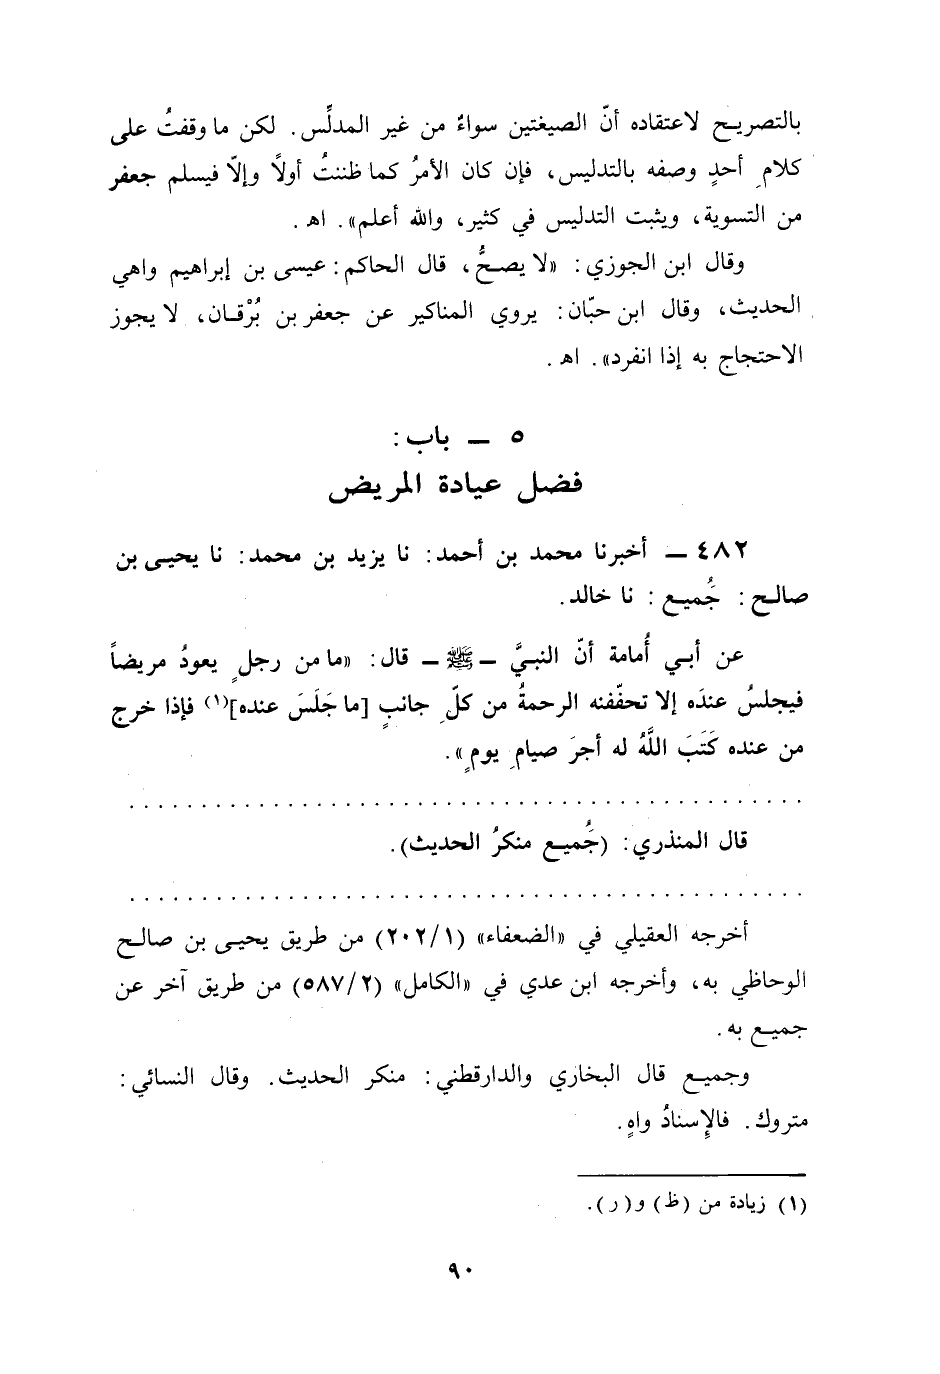 بالتصريح لاعتقاده أنّ الصيغتين سواءٌ من غير المدلِّس. لكن ما وقفتُ على
كلامِ أحدٍ وصفه بالتدليس، فإن كان الأمرُ كما ظننتُ أولاً وإلاّ فيسلم جعفر
من التسوية، ويثبت التدليس في كثير، والله أعلم». اهـ.
وقال ابن الجوزي: «لا يصحُّ، قال الحاكم: عيسى بن إبراهيم واهي
الحديث، وقال ابن حبّان: يروي المناكير عن جعفر بن بُرْقان، لا يجوز
الاحتجاج به إذا انفرد». اهـ.
٥ ــ باب:
فضل عيادة المريض
٤٨٢ ــ أخبرنا محمد بن أحمد: نا يزيد بن محمد: نا يحيى بن
صالح: جُميع: نا خالد.
عن أبي أُمامة أنّ النبيَّ ـ ﷺ ـ قال: «ما من رجلٍ يعودُ مريضاً
فيجلسُ عندَه إلا تحفّفته الرحمةُ من كلِّ جانبٍ [ما جَلَسَ عنده](١) فإذا خرج
من عنده كَتَبَ اللَّهُ له أجرَ صيامِ يومٍ».
. . . . . . . . . . . . . . . . . . . . . . . . . . . . . . . . . . . . . . . . . . . . . . .
قال المنذري: (جُميع منكرُ الحديث).
. . . . . . . . . . . . . . . . . . . . . . . . . . . . . . . . . . . . . . . . . . . . . . .
أخرجه العقيلي في «الضعفاء» (١/٢٠٢) من طريق يحيى بن صالح
الوحاظي به، وأخرجه ابن عدي في «الكامل» (٢/٥٨٧) من طريق آخر عن
جميع به.
وجميع قال البخاري والدارقطني: منكر الحديث. وقال النسائي:
متروك. فالإِسنادُ واهٍ.
(١) زيادة من (ظ) و(ر).
٩٠